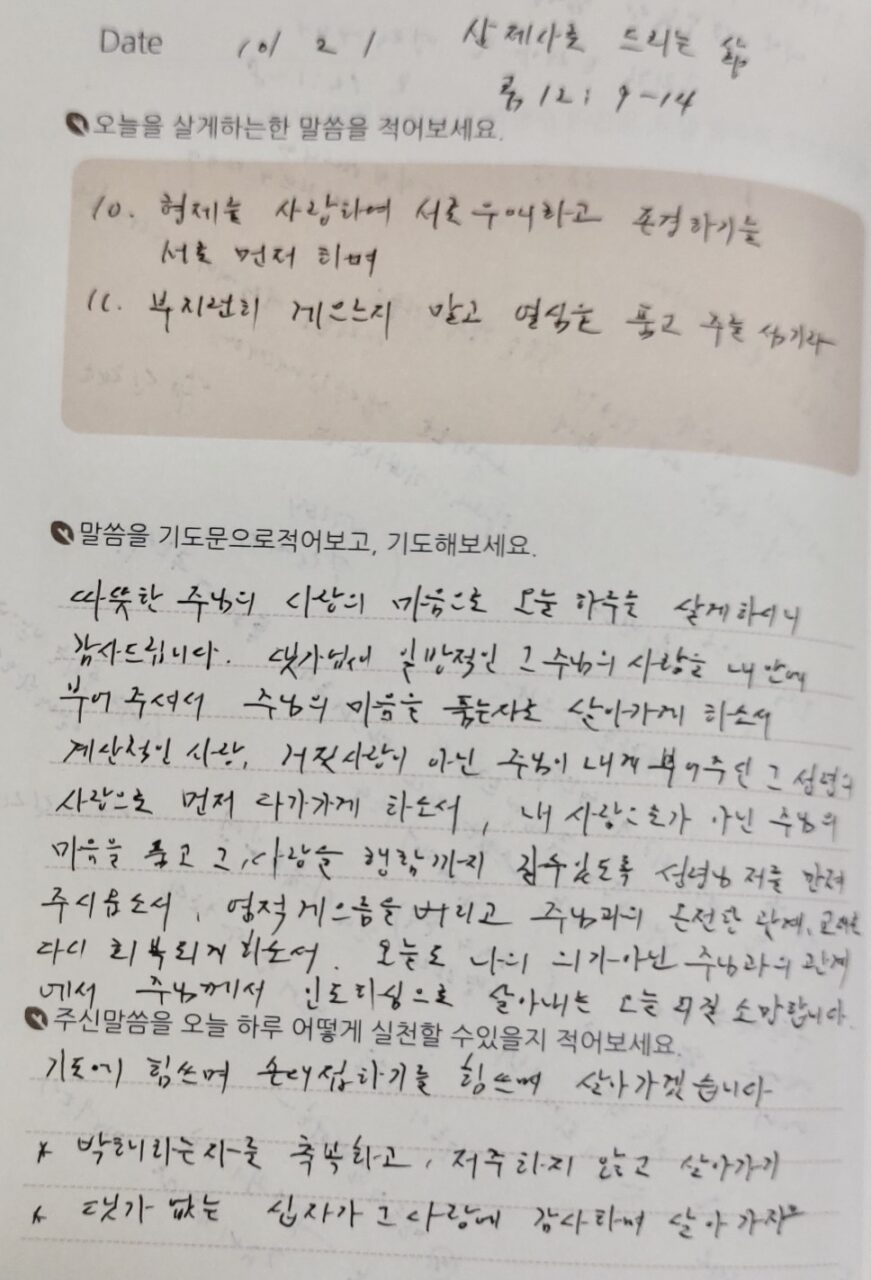 Date 10/ 21 산 제사로 드리는 삶
롬 12: 9-14
오늘을 살게하는한 말씀을 적어보세요.
10. 형제를 사랑하여 서로 우애하고 존경하기를
서로 먼저 하며
11. 부지런히 게으르지 말고 열심을 품고 주를 섬기라
말씀을 기도문으로적어보고, 기도해보세요.
따뜻한 주님의 사랑의 마음으로 오늘 하루를 살게하시니
감사드립니다. 댓가없이 일방적인 그 주님의 사랑을 내 안에
부어 주셔서 주님의 마음을 품는자로 살아가게 하소서
계산적인 사랑, 거짓사랑이 아닌 주님이 내게 부어주신 그
사랑으로 먼저 다가가게 하소서, 내 사랑으로가 아닌 주님의
마음을 품고 그 사랑을 행함까지 갈수있도록 성령님 저를 만져
주시옵소서, 영적게으름을 버리고 주님과의 온전한 관계,
다시 회복되게하소서. 오늘도 나의 의가 아닌 주님과의 관계
에서 주님께서 인도하심으로 살아내는 오늘 소망합니다
주신말씀을 오늘 하루 어떻게 실천할 수있을지 적어보세요.
기도에 힘쓰며 손대접하기를 힘쓰며 살아가겠습니다
* 박해하는자를 축복하고, 저주하지 않고 살아가기
* 댓가 없는 십자가 그 사랑에 감사하며 살아가자